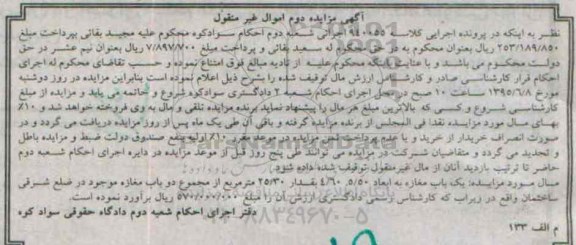 آگهی مزایده دوم اموال غیر منقول
نظر به اینکه در پرونده اجرایی کلاسه ۹۴۰۰۵۵ اجرائی شعبه دوم احکام سوادکوه محکوم علیه مجید بقائی بپرداخت مبلغ
۲۵۳/۱۸۹/۸۵۰ ریال بعنوان محکوم به در حق محکوم له سعید بقائی و پرداخت مبلغ ۷/۸۹۷/۷۰۰ ریال بعنوان نیم عشر در حق
دولت محکوم می باشند و با عنایت اینکه محکوم علیه از تادیه مبالغ فوق امتناع نموده و حسب تقاضای محکوم له اجرای
احکام قرار کارشناسی صادر و کارشناس ارزش مال توقیف شده را بشرح ذیل اعلام نموده است بنابراین مزایده در روز دوشنبه
مورخ ۱۳۹۵/۶/۸ ساعت ۱۰ صبح در محل اجرای احکام شعبه ۲ دادگستری سوادکوه شروع و خاتمه می یابد و مزایده از مبلغ
کارشناسی شروع و کسی که بالاترین مبلغ هر مال را پیشنهاد نماید برنده مزایده تلقی و مال به وی فروخته خواهد شد و ۱۰٪
بهای مال مورد مزایده نقدا فی المجلس از برنده مزایده گرفته و باقی آن طی یک ماه پس از روز مزایده دریافت می گردد و در
صورت انصراف خریدار از خرید و یا عدم پرداخت ثمن مزایده در موعد مقرر ۱۰٪ اولیه بنفع صندوق دولت ضبط و مزایده باطل
و تجدید می گردد و متقاضیان شرکت در مزایده می توانند طی پنج روز قبل از موعد مزایده در دایره اجرای احکام شعبه دوم
حاضر تا ترتیب بازدید آنان از مال غیرمنقول توقیف شده داده شود.
مال مورد مزایده: یک باب مغازه به ابعاد ۴/۶۰٫۵/۵۰ بمقدار ۲۵/۳۰ مترمربع از مجموع دو باب مغازه موجود در ضلع شرقی
ساختمان واقع در زیراب که کارشناس رسمی دادگستری ارزش آن را مبلغ ۵۷۰/۰۰۰/۰۰۰ ریال برآورد نموده است.
دفتر اجرای احکام شعبه دوم دادگاه حقوقی سواد کوه
م الف ۱۳۳
ParsNamadData
۸۸۳۴۹۶۷۰-۵